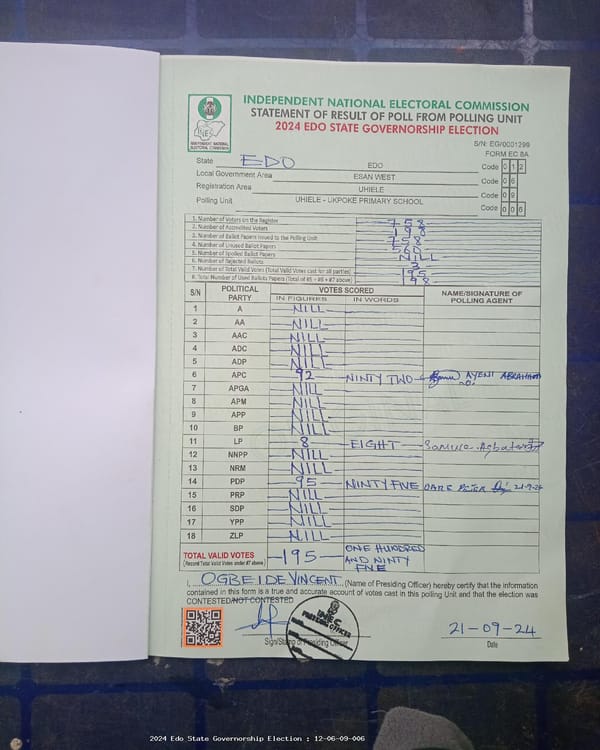 INDEPENDENT NATIONAL ELECTORAL COMMISSION
STATEMENT OF RESULT OF POLL FROM POLLING UNIT
2024 EDO STATE GOVERNORSHIP ELECTION
INEC
INDEPENDENT NATIONAL ELECTORAL COMMISSION
S/N: EG/0001299
FORM EC 8A
State EDO EDO Code 012
Local Government Area ESAN WEST Code 06
Registration Area UHIELE Code 09
Polling Unit UHIELE - UKPOKE PRIMARY SCHOOL Code 006
1. Number of Voters on the Register 758
2. Number of Accredited Voters 198
3. Number of Ballot Papers Issued to the Polling Unit 758
4. Number of Unused Ballot Papers 560
5. Number of Spoiled Ballot Papers NILL
6. Number of Rejected Ballots 3
7. Number of Total Valid Votes (Total Valid Votes cast for all parties) 195
8. Total Number of Used Ballots Papers (Total of #5 + #6 + #7 above) 198
S/N POLITICAL PARTY VOTES SCORED NAME/SIGNATURE OF POLLING AGENT
IN FIGURES IN WORDS
1 A NILL
2 AA NILL
3 AAC NILL
4 ADC NILL
5 ADP NILL
6 APC 92 NINTY TWO AYENI ABRAHAM
7 APGA NILL
8 APM NILL
9 APP NILL
10 BP NILL
11 LP 8 EIGHT
12 NNPP NILL
13 NRM NILL
14 PDP 95 NINTY FIVE DARE PETER 21-9-24
15 PRP NILL
16 SDP NILL
17 YPP NILL
18 ZLP NILL
TOTAL VALID VOTES 195 ONE HUNDRED AND NINTY FIVE
(Record Total Valid Votes under #7 above)
I, OGBEIDE VINCENT (Name of Presiding Officer) hereby certify that the information
contained in this form is a true and accurate account of votes cast in this polling Unit and that the election was
CONTESTED/NOT CONTESTED
INEC
PRESIDING OFFICER
Sign/Stamp of Presiding Officer
21-09-24
Date
2024 Edo State Governorship Election : 12-06-09-006